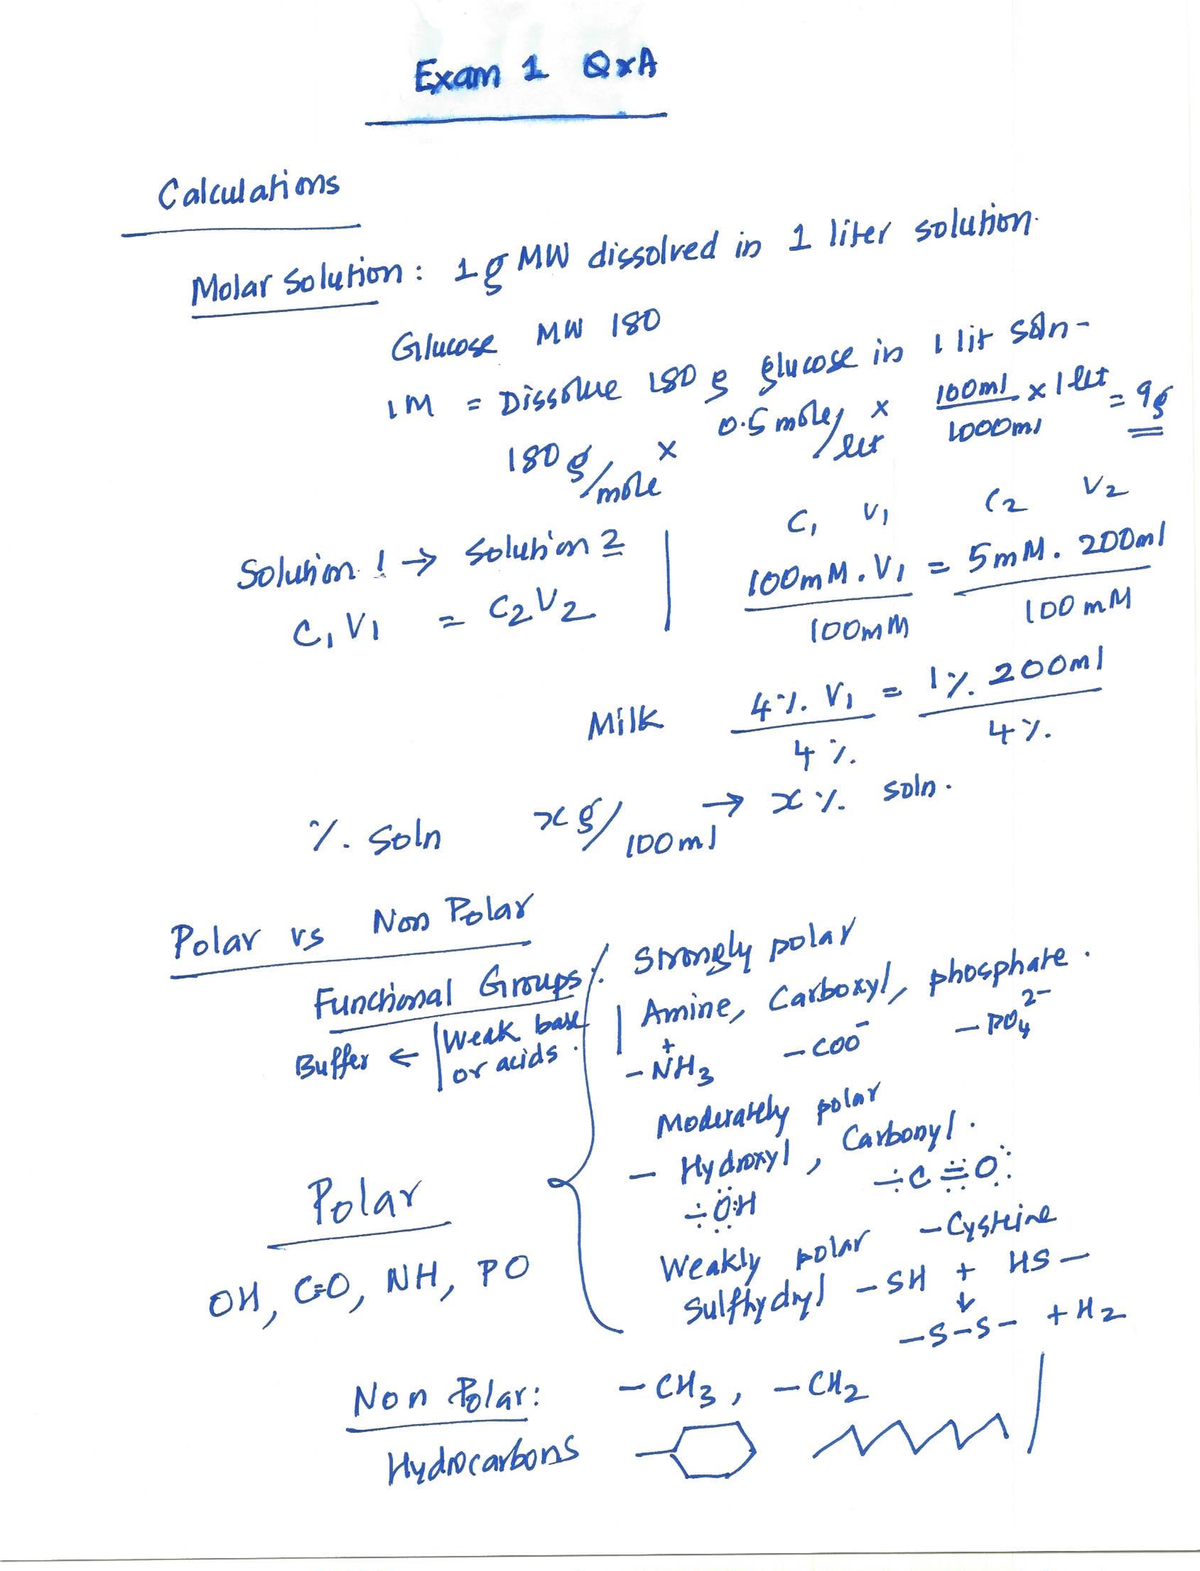 Exam 1 Q&A
Calculations
Molar Solution: 1g MW dissolved in 1 liter solution.
Glucose MW 180
1M = Dissolve 180 g glucose in 1 lit soln-
180 g/mole × 0.5 mole/lit × 100ml/1000ml × 1 lit = 9g
Solution 1 → Solution 2
C₁V₁ = C₂V₂
C₁ V₁ C₂ V₂
100mM . V₁ = 5mM . 200ml
100mM 100mM
Milk 4% . V₁ = 1% . 200ml
4% 4%
% . Soln x g/100ml → x % soln .
Polar vs Non Polar
Functional Groups: Strongly polar
Buffer ← Weak base or acids . Amine, Carboxyl, phosphate .
-NH₃⁺ -COO⁻ -PO₄²⁻
Moderately polar
- Hydroxyl , Carbonyl .
÷ÖH ÷C::O:
Polar
OH, C=O, NH, PO
Weakly polar - Cysteine
Sulfhydryl -SH + HS-
↓
-S-S- + H₂
Non Polar: -CH₃ , -CH₂
Hydrocarbons